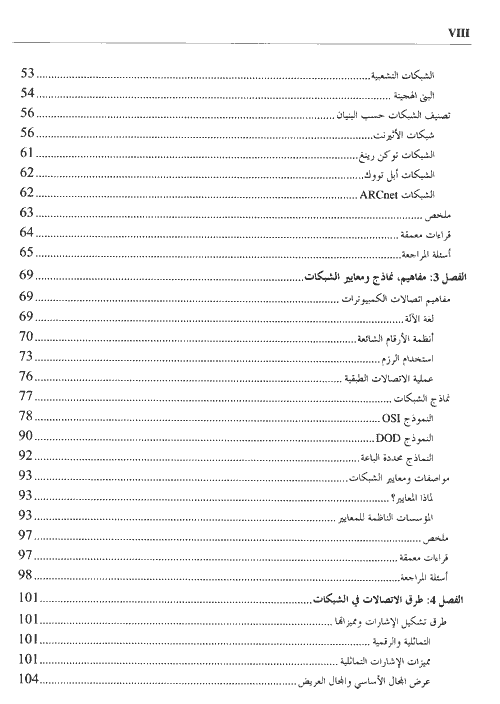 VIII
الشبكات التشعبية 53
البنى الهجينة 54
تصنيف الشبكات حسب البنيان 56
شبكات الأثيرنت 56
الشبكات توكن رينغ 61
الشبكات أبل تووك 62
الشبكات ARCnet 62
ملخص 63
قراءات معمقة 64
أسئلة المراجعة 65
الفصل 3: مفاهيم، نماذج ومعايير الشبكات 69
مفاهيم اتصالات الكمبيوترات 69
لغة الآلة 69
أنظمة الأرقام الشائعة 70
استخدام الرزم 73
عملية الاتصالات الطبقية 76
نماذج الشبكات 77
النموذج OSI 78
النموذج DOD 90
النماذج محددة الباعة 92
مواصفات ومعايير الشبكات 93
لماذا المعايير؟ 93
المؤسسات الناظمة للمعايير 93
ملخص 97
قراءات معمقة 97
أسئلة المراجعة 98
الفصل 4: طرق الاتصالات في الشبكات 101
طرق تشكيل الإشارات ومميزاتها 101
التماثلية والرقمية 101
مميزات الإشارات التماثلية 101
عرض المجال الأساسي والمجال العريض 104